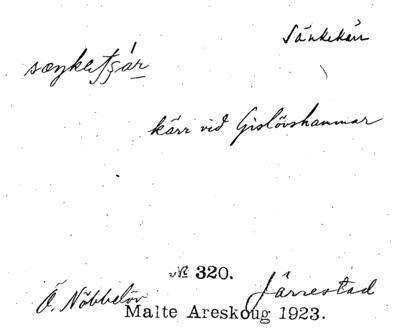 Sänkekärr
sæŋkət̠ʃár
kärr vid Gislövshammar
№ 320.
Ö. Nöbbelöv
Järrestad
Malte Areskoug 1923.